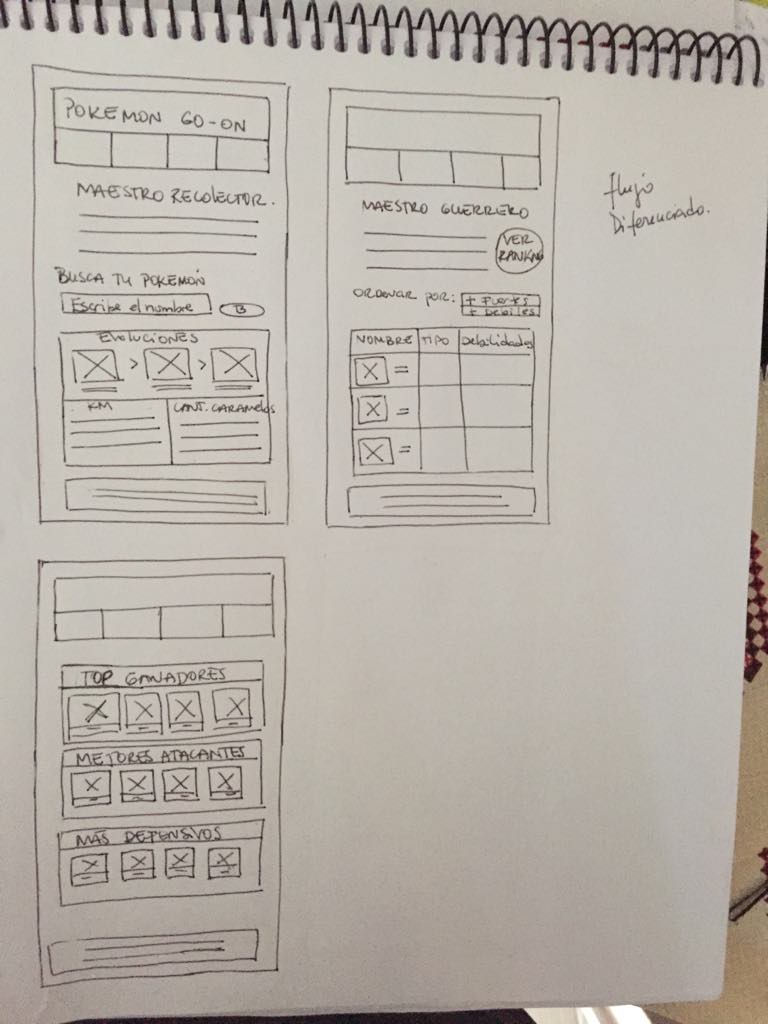 POKEMON GO-ON
MAESTRO RECOLECTOR.
BUSCA TU POKEMON
Escribe el nombre
B
EVOLUCIONES
> >
KM
CANT. CARAMELOS
MAESTRO GUERRERO
VER
RANKNG
ORDENAR POR:
+ FUERTES
+ DEBILES
NOMBRE TIPO Debilidades
=
=
=
flujo
Diferenciado.
TOP GANADORES
MEJORES ATACANTES
MÁS DEFENSIVOS